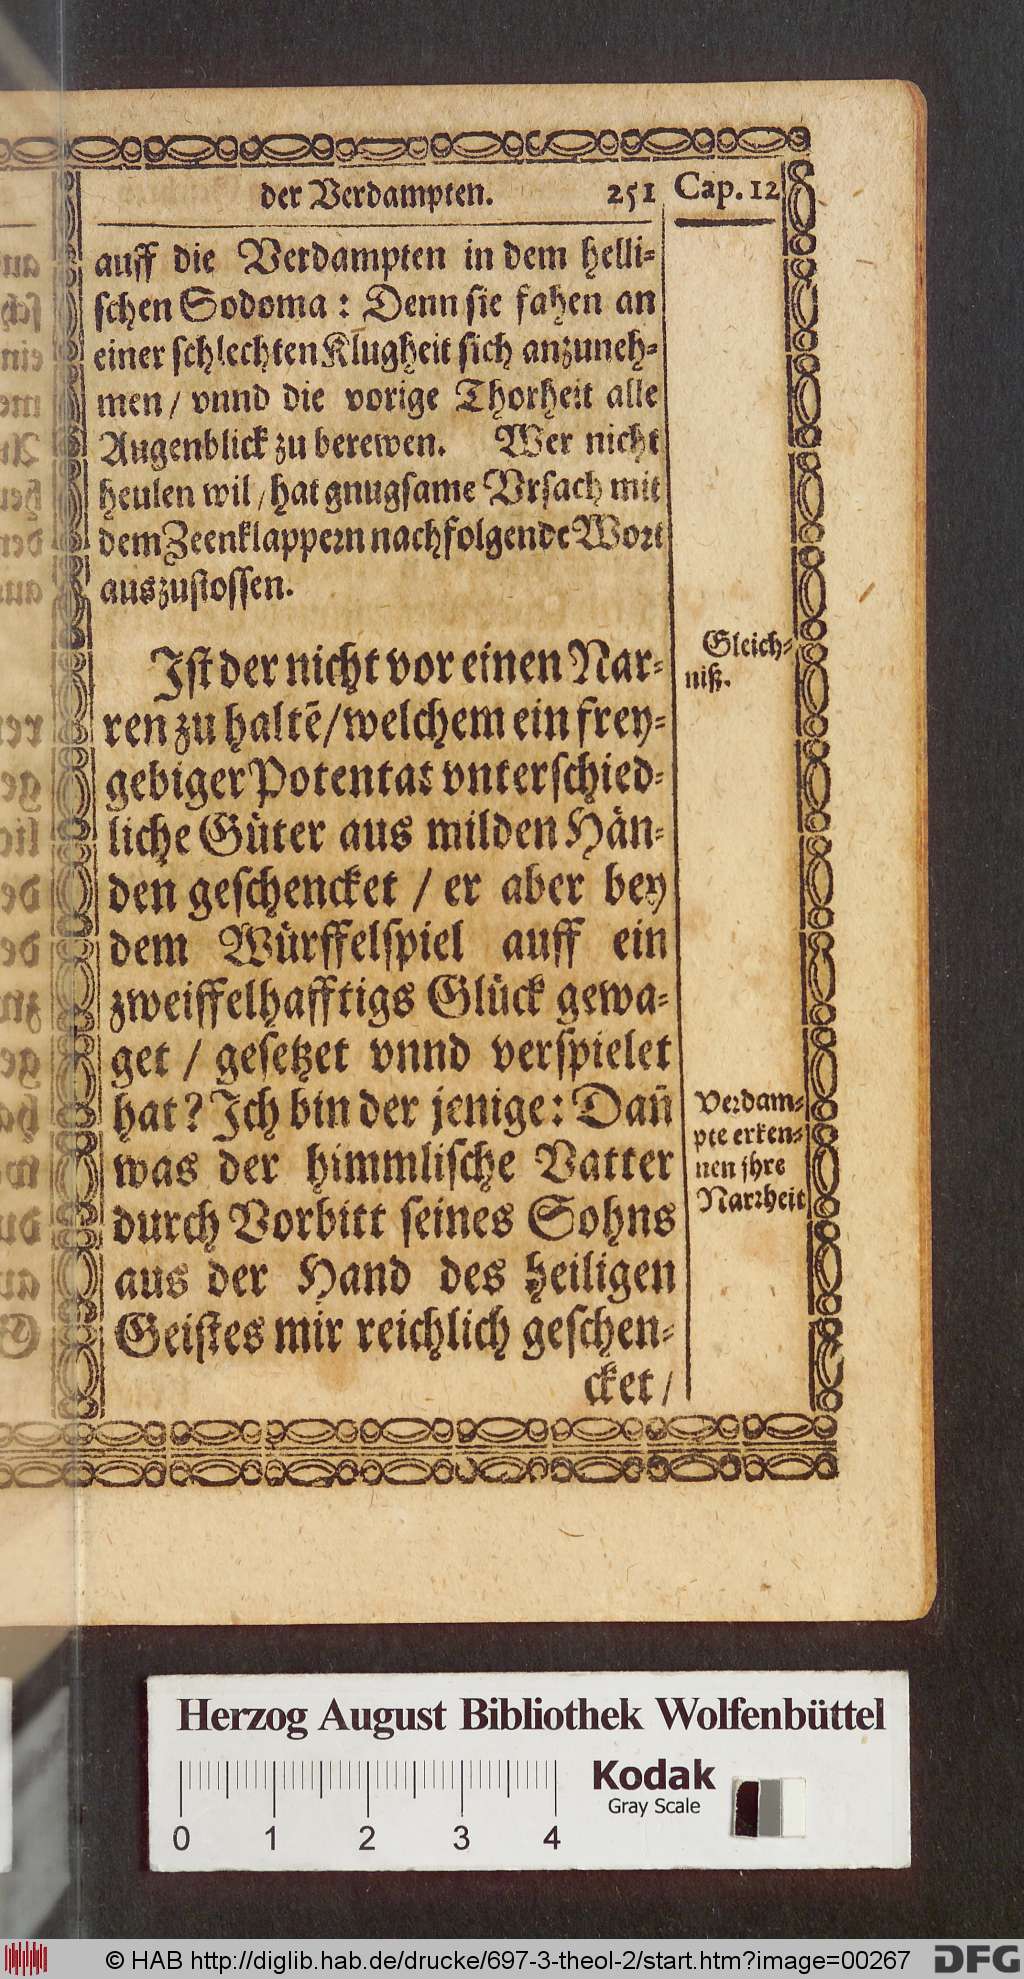 der Verdampten. 251 Cap. 12
auff die Verdampten in dem helli-
schen Sodoma: Denn sie fahen an
einer schlechten Klugheit sich anzuneh-
men / vnnd die vorige Thorheit alle
Augenblick zu berewen. Wer nicht
heulen wil / hat gnugsame Vrsach mit
dem Zeenklappern nachfolgende Wort
auszustossen.
Gleich-
niß.
Ist der nicht vor einen Nar-
ren zu haltē / welchem ein frey-
gebiger Potentat vnterschied-
liche Güter aus milden Hän-
den geschencket / er aber bey
dem Würffelspiel auff ein
zweiffelhafftigs Glück gewa-
get / gesetzet vnnd verspielet
hat? Ich bin der jenige: Dan̄
was der himmlische Vatter
durch Vorbitt seines Sohns
aus der Hand des heiligen
Geistes mir reichlich geschen-
cket /
Verdam-
pte erken-
nen jhre
Narrheit
Herzog August Bibliothek Wolfenbüttel
Kodak
Gray Scale
0 1 2 3 4
© HAB http://diglib.hab.de/drucke/697-3-theol-2/start.htm?image=00267
DFG